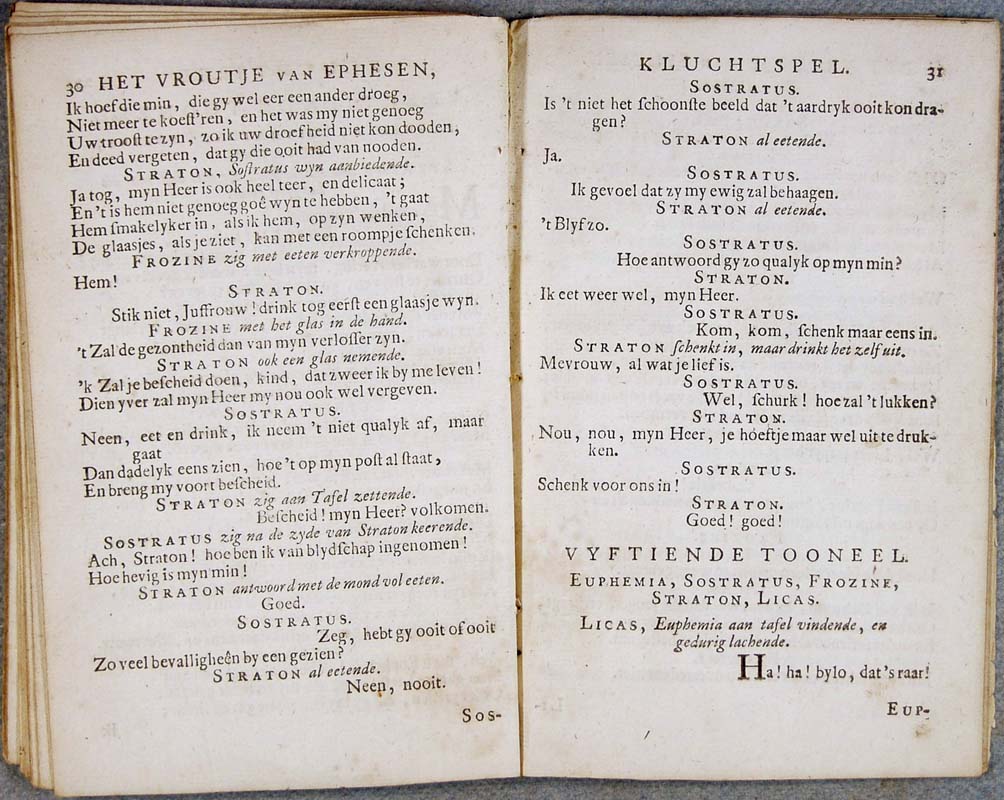 30 HET VROUTJE VAN EPHESEN,
Ik hoef die min, die gy wel eer een ander droeg,
Niet meer te koeſt'ren, en het was my niet genoeg
Uw trooſt te zyn, zo ik uw droefheid niet kon dooden,
En deed vergeten, dat gy die ooit had van nooden.
STRATON, Soſtratus wyn aanbiedende.
Ja tog, myn Heer is ook heel teer, en delicaat;
En 't is hem niet genoeg goê wyn te hebben, 't gaat
Hem ſmakelyker in, als ik hem, op zyn wenken,
De glaasjes, als je ziet, kan met een roompje ſchenken.
FROZINE zig met eeten verkroppende.
Hem!
STRATON.
Stik niet, Juffrouw! drink tog eerſt een glaasje wyn.
FROZINE met het glas in de hand.
't Zal de gezontheid dan van myn verloſſer zyn.
STRATON ook een glas nemende.
'k Zal je beſcheid doen, kind, dat zweer ik by me leven!
Dien yver zal myn Heer my nou ook wel vergeven.
SOSTRATUS.
Neen, eet en drink, ik neem 't niet qualyk af, maar
gaat
Dan dadelyk eens zien, hoe 't op myn poſt al ſtaat,
En breng my voort beſcheid.
STRATON zig aan Tafel zettende.
Beſcheid! myn Heer? volkomen.
SOSTRATUS zig na de zyde van Straton keerende.
Ach, Straton! hoe ben ik van blydſchap ingenomen!
Hoe hevig is myn min!
STRATON antwoord met de mond vol eeten.
Goed.
SOSTRATUS.
Zeg, hebt gy ooit of ooit
Zo veel bevalligheên by een gezien?
STRATON al eetende.
Neen, nooit.
SOS-
KLUCHTSPEL. 31
SOSTRATUS.
Is 't niet het ſchoonſte beeld dat 't aardryk ooit kon dra-
gen?
STRATON al eetende.
Ja.
SOSTRATUS.
Ik gevoel dat zy my ewig zal behaagen.
STRATON al eetende.
't Blyf zo.
SOSTRATUS.
Hoe antwoord gy zo qualyk op myn min?
STRATON.
Ik eet weer wel, myn Heer.
SOSTRATUS.
Kom, kom, ſchenk maar eens in.
STRATON ſchenkt in, maar drinkt het zelf uit.
Mevrouw, al wat je lief is.
SOSTRATUS.
Wel, ſchurk! hoe zal 't lukken?
STRATON.
Nou, nou, myn Heer, je hoeftje maar wel uit te druk-
ken.
SOSTRATUS.
Schenk voor ons in!
STRATON.
Goed! goed!
VYFTIENDE TOONEEL.
EUPHEMIA, SOSTRATUS, FROZINE,
STRATON, LICAS.
LICAS, Euphemia aan tafel vindende, en
gedurig lachende.
Ha! ha! bylo, dat's raar!
EUP-